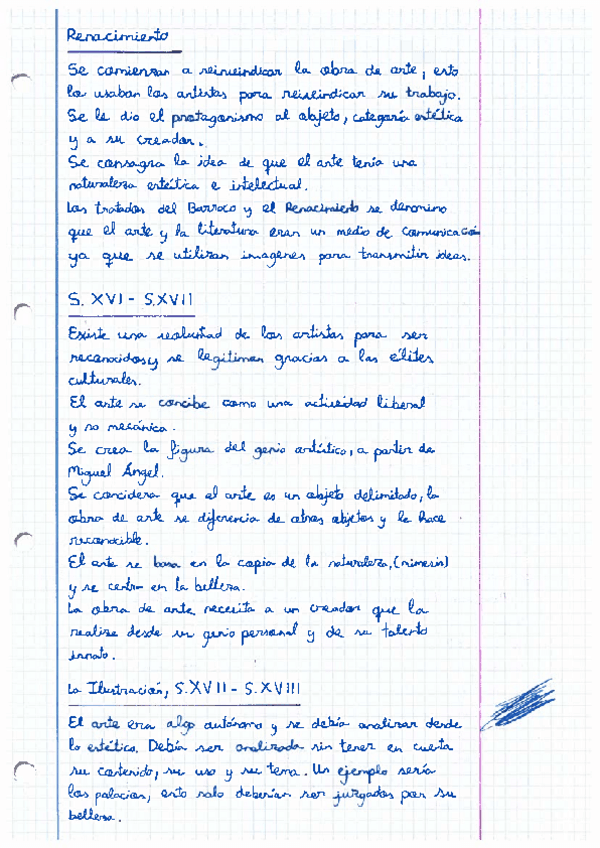 Renacimiento
Se comienzan a reinvindicar la obra de arte, esto
lo usaban los artistas para reinvindicar su trabajo.
Se le dio el protagonismo al objeto, categoría estética
y a su creador.
Se consagra la idea de que el arte tenía una
naturaleza estética e intelectual.
Los tratados del Barroco y el Renacimiento se denomino
que el arte y la literatura eran un medio de comunicación
ya que se utilizan imagenes para transmitir ideas.
S. XVI - S.XVII
Existe una voluntad de los artistas para ser
reconocidos y se legitiman gracias a las élites
culturales.
El arte se concibe como una actividad liberal
y no mecánica.
Se crea la figura del genio artístico, a partir de
Miguel Ángel.
Se considera que el arte es un objeto delimitado, la
obra de arte se diferencia de otros objetos y le hace
reconocible.
El arte se basa en la copia de la naturaleza, (mimesis)
y se centra en la belleza.
La obra de arte necesita a un creador que la
realize desde su genio personal y de su talento
innato.
La Ilustración, S.XVII - S.XVIII
El arte era algo autónomo y se debía analizar desde
lo estético. Debía ser analizada sin tener en cuenta
su contenido, su uso y su tema. Un ejemplo sería
los palacios, esto solo deberían ser juzgados por su
belleza.